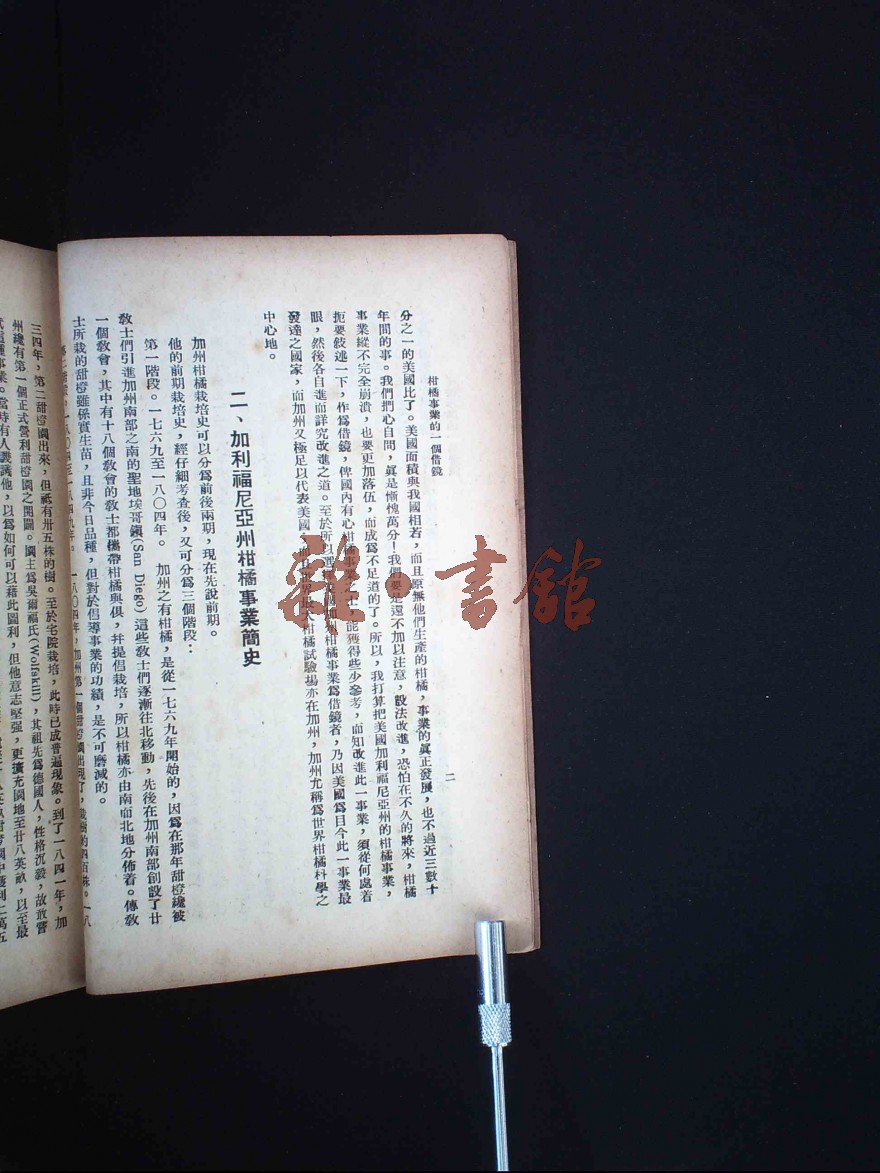 柑橘事業的一個借鏡
二
分之一的美國比了。美國面積與我國相若,而且原無他們生產的柑橘,事業的眞正發展,也不過近三數十
年間的事。我們捫心自問,眞是慚愧萬分!我們要是還不加以注意,設法改進,恐怕在不久的將來,柑橘
事業縱不完全崩潰,也要更加落伍,而成爲不足道的了。所以,我打算把美國加利福尼亞州的柑橘事業,
扼要敍述一下,作爲借鏡,俾國內有心柑橘事業 能獲得些少參考,而知改進此一事業,須從何處着
眼,然後各自進而詳究改進之道。至於所以 加州柑橘事業爲借鏡者,乃因美國爲日今此一事業最
發達之國家,而加州又極足以代表美國 世界最大柑橘試驗場亦在加州,加州尤稱爲世界柑橘科學之
中心地。
二、加利福尼亞州柑橘事業簡史
加州柑橘栽培史可以分爲前後兩期,現在先說前期。
他的前期栽培史,經仔細考查後,又可分爲三個階段:
第一階段。一七六九至一八〇四年。 加州之有柑橘,是從一七六九年開始的,因爲在那年甜橙纔被
敎士們引進加州南部之南的聖地埃哥鎭(San Diego)這些敎士們逐漸往北移動,先後在加州南部創設了廿
一個敎會,其中有十八個敎會的敎士都儶帶柑橘與俱,幷提倡栽培,所以柑橘亦由南而北地分佈着。傳敎
士所栽的甜橙雖係實生苗,且非今日品種,但對於倡導事業的功績,是不可磨滅的。
第二階段。一八〇四至一八四九年。 一八〇四年,加州第一個甜橙園出現了,栽樹約四百株。一八
三四年,第二甜橙園出來,但祗有卅五株的樹。至於宅院栽培,此時已成普遍現象。到了一八四一年,加
州纔有第一個正式營利甜橙園之開闢。園主爲吳爾福氏(Wolfskill),其祖先爲德國人,性格沉毅,故敢嘗
試這種事業。當時有人譏誚他,以爲如何可以藉此圖利,但他意志堅强,更擴充園地至廿八英畝,以至最